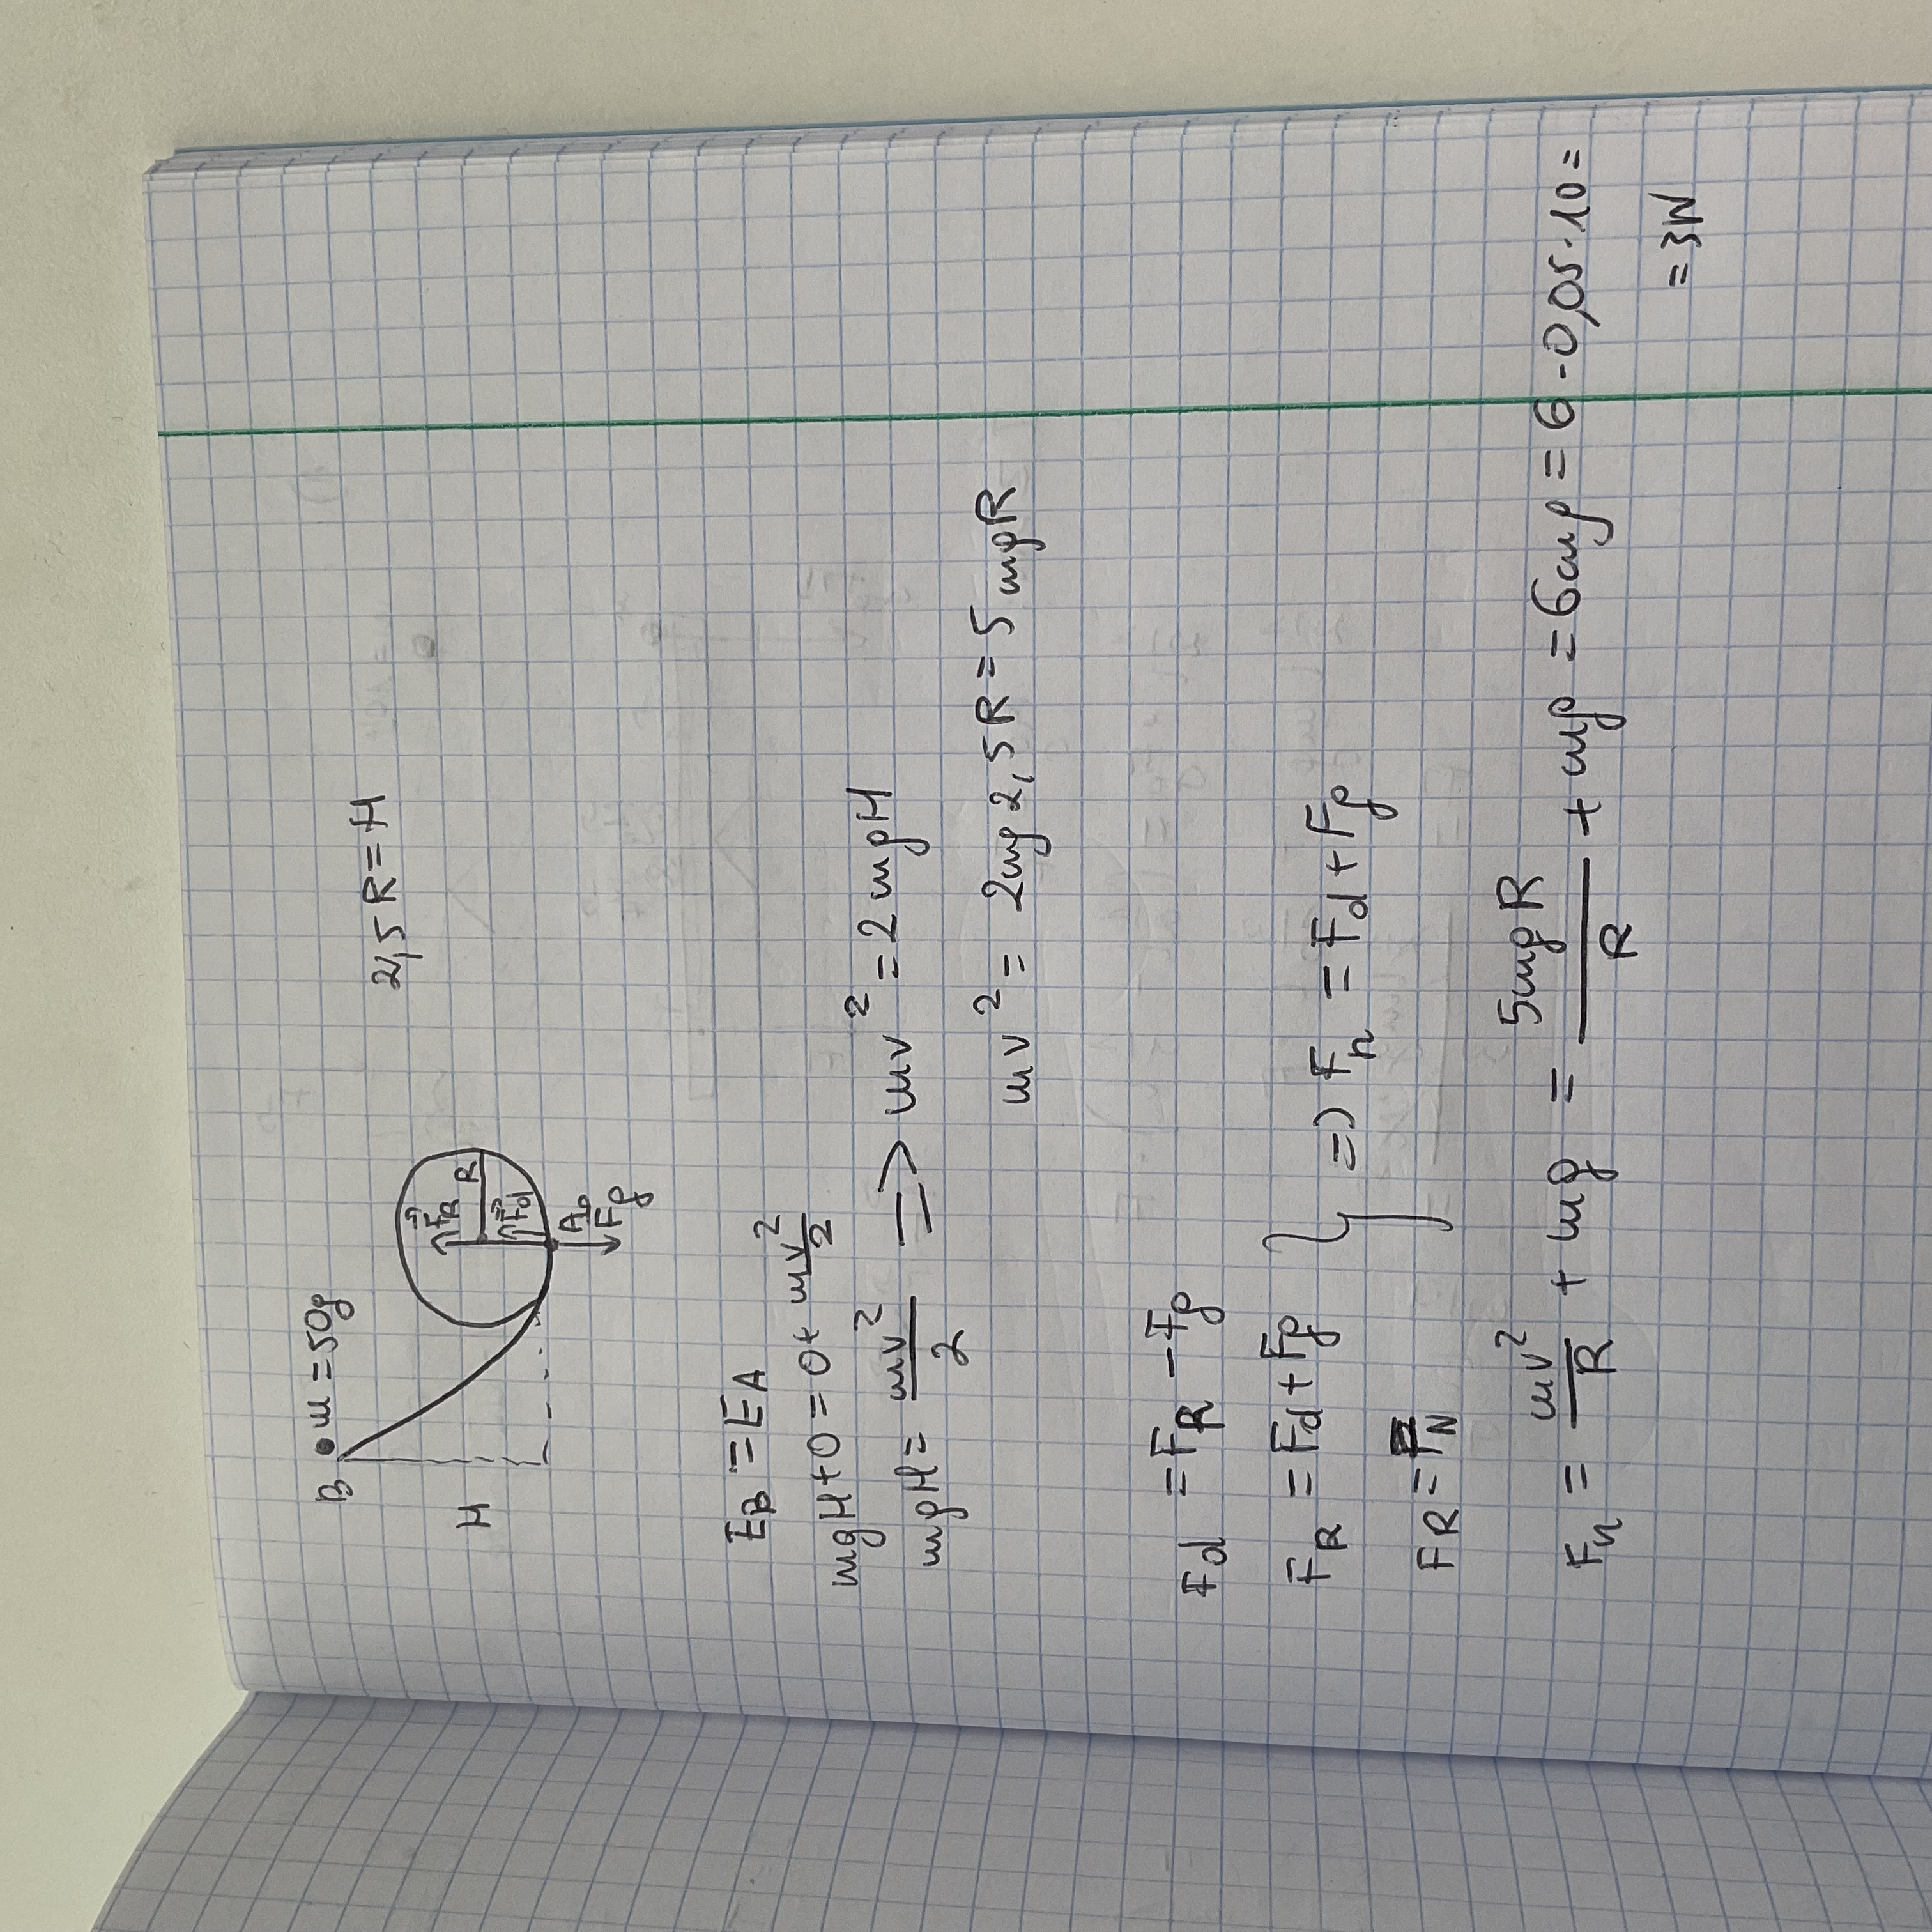 B m = 50g
2,5R = H
F⃗R R
H F⃗d
A
Fg
EB = EA
mgH + 0 = 0 + mv²/2
mgH = mv²/2 => mv² = 2mgH
mv² = 2mg 2,5R = 5mgR
Fd = FR - Fg
FR = Fd + Fg
=> Fn = Fd + Fg
FR = FN
Fn = mv²/R + mg = 5mgR/R + mg = 6mg = 6 · 0,05 · 10 =
= 3N